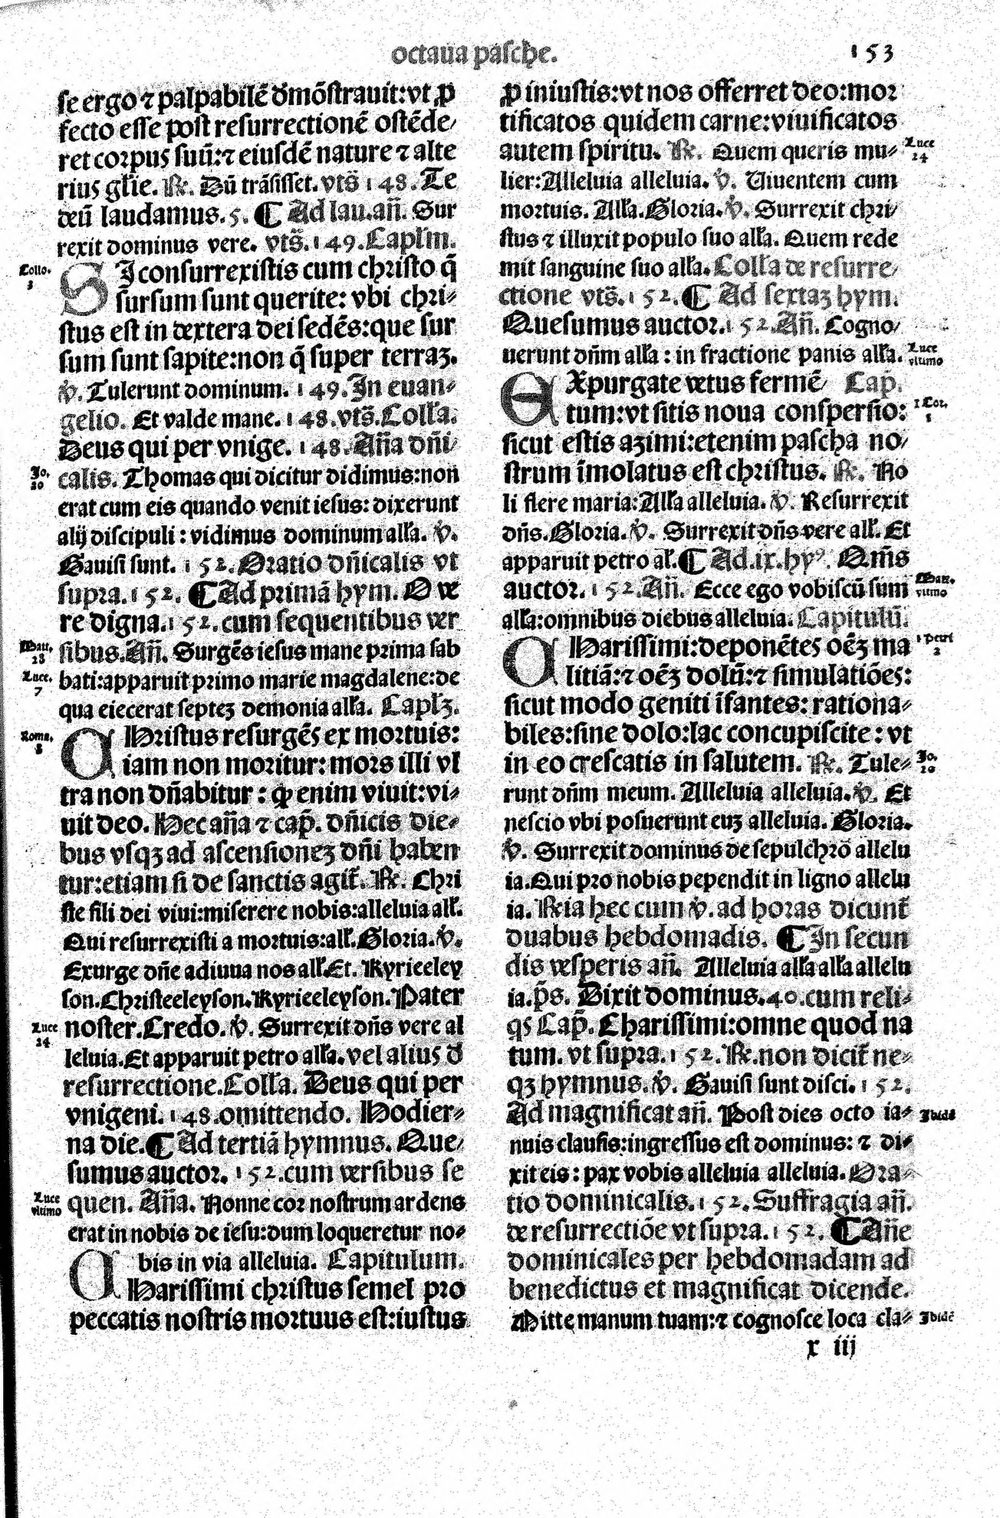 octaua pasche. 153
se ergo ⁊ palpabilē dmōstrauit:vt ꝓ
fecto esse post resurrectionē ostēde/
ret corpus suū:⁊ eiusdē nature ⁊ alte
rius glie. ℟. Dū trāsisset. vts̄ 148. Te
deū laudamus. 5. ¶ Ad lau. añ. Sur
rexit dominus vere. vts̄. 149. Caplm̄.
Collo. 3
SI consurrexistis cum christo q̄
sursum sunt querite: vbi chri-
stus est in dextera dei sedēs:que sur
sum sunt sapite:non q̄ super terraꝫ.
℣. Tulerunt dominum. 149. In euan-
gelio. Et valde mane. 148. vts̄. Colla.
Deus qui per vnige. 148. Aña dñi/
Jo. 20
calis. Thomas qui dicitur didimus:non
erat cum eis quando venit iesus: dixerunt
alij discipuli: vidimus dominum alla. ℣.
Gauisi sunt. 152. Oratio dñicalis vt
supra. 152. ¶ Ad primā hym. O ve
re digna. 152. cum sequentibus ver
Mat. 28
sibus. Añ. Surgēs iesus mane prima sab
Luce. 7
bati:apparuit primo marie magdalene:de
qua eiecerat septeꝫ demonia alla. Caplꝫ.
Roma. 8
CHristus resurgēs ex mortuis:
iam non moritur: mors illi vl
tra non dñabitur: qđ enim viuit:vi-
uit deo. Hec aña ⁊ cap̄. dñicis die-
bus vsqꝫ ad ascensioneꝫ dñi haben
tur:etiam si de sanctis agit̄. ℟. Chri
ste fili dei viui:miserere nobis:alleluia all.
Qui resurrexisti a mortuis:all. Gloria. ℣.
Exurge dñe adiuua nos all. Et. Kyrieeley
son. Christeeleyson. Kyrieeleyson. Pater
Luce 24
noster. Credo. ℣. Surrexit dñs vere al
leluia. Et apparuit petro alla. vel alius d
resurrectione. Colla. Deus qui per
vnigeni. 148. omittendo. Hodier-
na die. ¶ Ad tertiā hymnus. Que/
sumus auctor. 152. cum versibus se
Luce vltimo
quen. Aña. Nonne cor nostrum ardens
erat in nobis de iesu:dum loqueretur no-
bis in via alleluia. Capitulum.
CHarissimi christus semel pro
peccatis nostris mortuus est:iustus
ꝓ iniustis:vt nos offerret deo:mor
tificatos quidem carne:viuificatos
autem spiritu. ℟. Quem queris mu-
Luce 24
lier:Alleluia alleluia. ℣. Uiuentem cum
mortuis. Alla. Gloria. ℣. Surrexit chri-
stus ⁊ illuxit populo suo alla. Quem rede
mit sanguine suo alla. Colla de resurre/
ctione vts̄. 152. ¶ Ad sextaꝫ hym.
Quesumus auctor. 152. Añ. Cogno/
uerunt dñm alla: in fractione panis alla.
Luce vltimo
EXpurgate vetus fermē/ Cap̄.
tum:vt sitis noua conspersio:
1 Cor. 5
sicut estis azimi:etenim pascha no/
strum īmolatus est christus. ℟. No
li flere maria: Alla alleluia. ℣. Resurrexit
dñs. Gloria. ℣. Surrexit dñs vere all. Et
apparuit petro al. ¶ Ad. ix. hyꝰ. Oms̄
auctor. 152. Añ. Ecce ego vobiscū sum
Mat. vltimo
alla:omnibus diebus alleluia. Capitulū.
CHarissimi:deponētes oēꝫ ma
1 Petri 2
litiā:⁊ oēꝫ dolū:⁊ simulatiōes:
sicut modo geniti īfantes: rationa-
biles:sine dolo:lac concupiscite: vt
in eo crescatis in salutem. ℟. Tule-
Jo. 20
runt dñm meum. Alleluia alleluia. ℣. Et
nescio vbi posuerunt euꝫ alleluia. Gloria.
℣. Surrexit dominus de sepulchrō allelu
ia. Qui pro nobis pependit in ligno allelu
ia. ℟ia hec cum ℣. ad horas dicunt̄
duabus hebdomadis. ¶ In secun
dis vesperis añ. Alleluia alla alla allelu
ia. ps̄. Dixit dominus. 40. cum reli-
qs Cap̄. Charissimi:omne quod na
tum. vt supra. 152. ℟. non dicit̄ ne-
qꝫ hymnus. ℣. Gauisi sunt disci. 152.
Ad magnificat añ. Post dies octo ia-
Ibidē
nuis clausis:ingressus est dominus: ⁊ di-
xit eis: pax vobis alleluia alleluia. Ora-
tio dominicalis. 152. Suffragia añ.
de resurrectiōe vt supra. 152. ¶ Añe
dominicales per hebdomadam ad
benedictus et magnificat dicende.
Mitte manum tuam:⁊ cognosce loca cla-
Ibidē
x iij